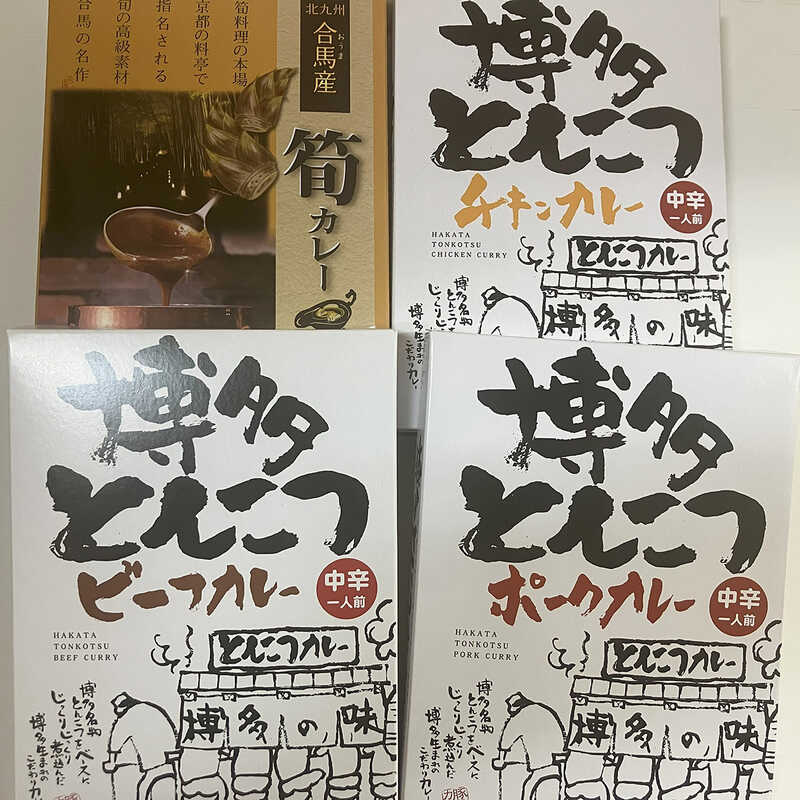 北九州
合馬産
おうま
筍カレー
筍料理の本場
京都の料亭で
指名される
旬の高級素材
合馬の名作
博多
とんこつ
チキンカレー
中辛
一人前
HAKATA
TONKOTSU
CHICKEN CURRY
とんこつカレー
博多の味
博多名物
とんこつをベースに
じっくりじっ
博多生まれの
こだわりカレー
博多
とんこつ
ビーフカレー
中辛
一人前
HAKATA
TONKOTSU
BEEF CURRY
とんこつカレー
博多の味
博多名物
とんこつをベースに
じっくりじっくり煮込んだ
博多生まれの
こだわりカレ
博多
とんこつ
ポークカレー
中辛
一人前
HAKATA
TONKOTSU
PORK CURRY
とんこつカレー
博多の味
博多名物
とんこつをベースに
じっくりじっくり煮込んだ
博多生まれの
こだわりカレ